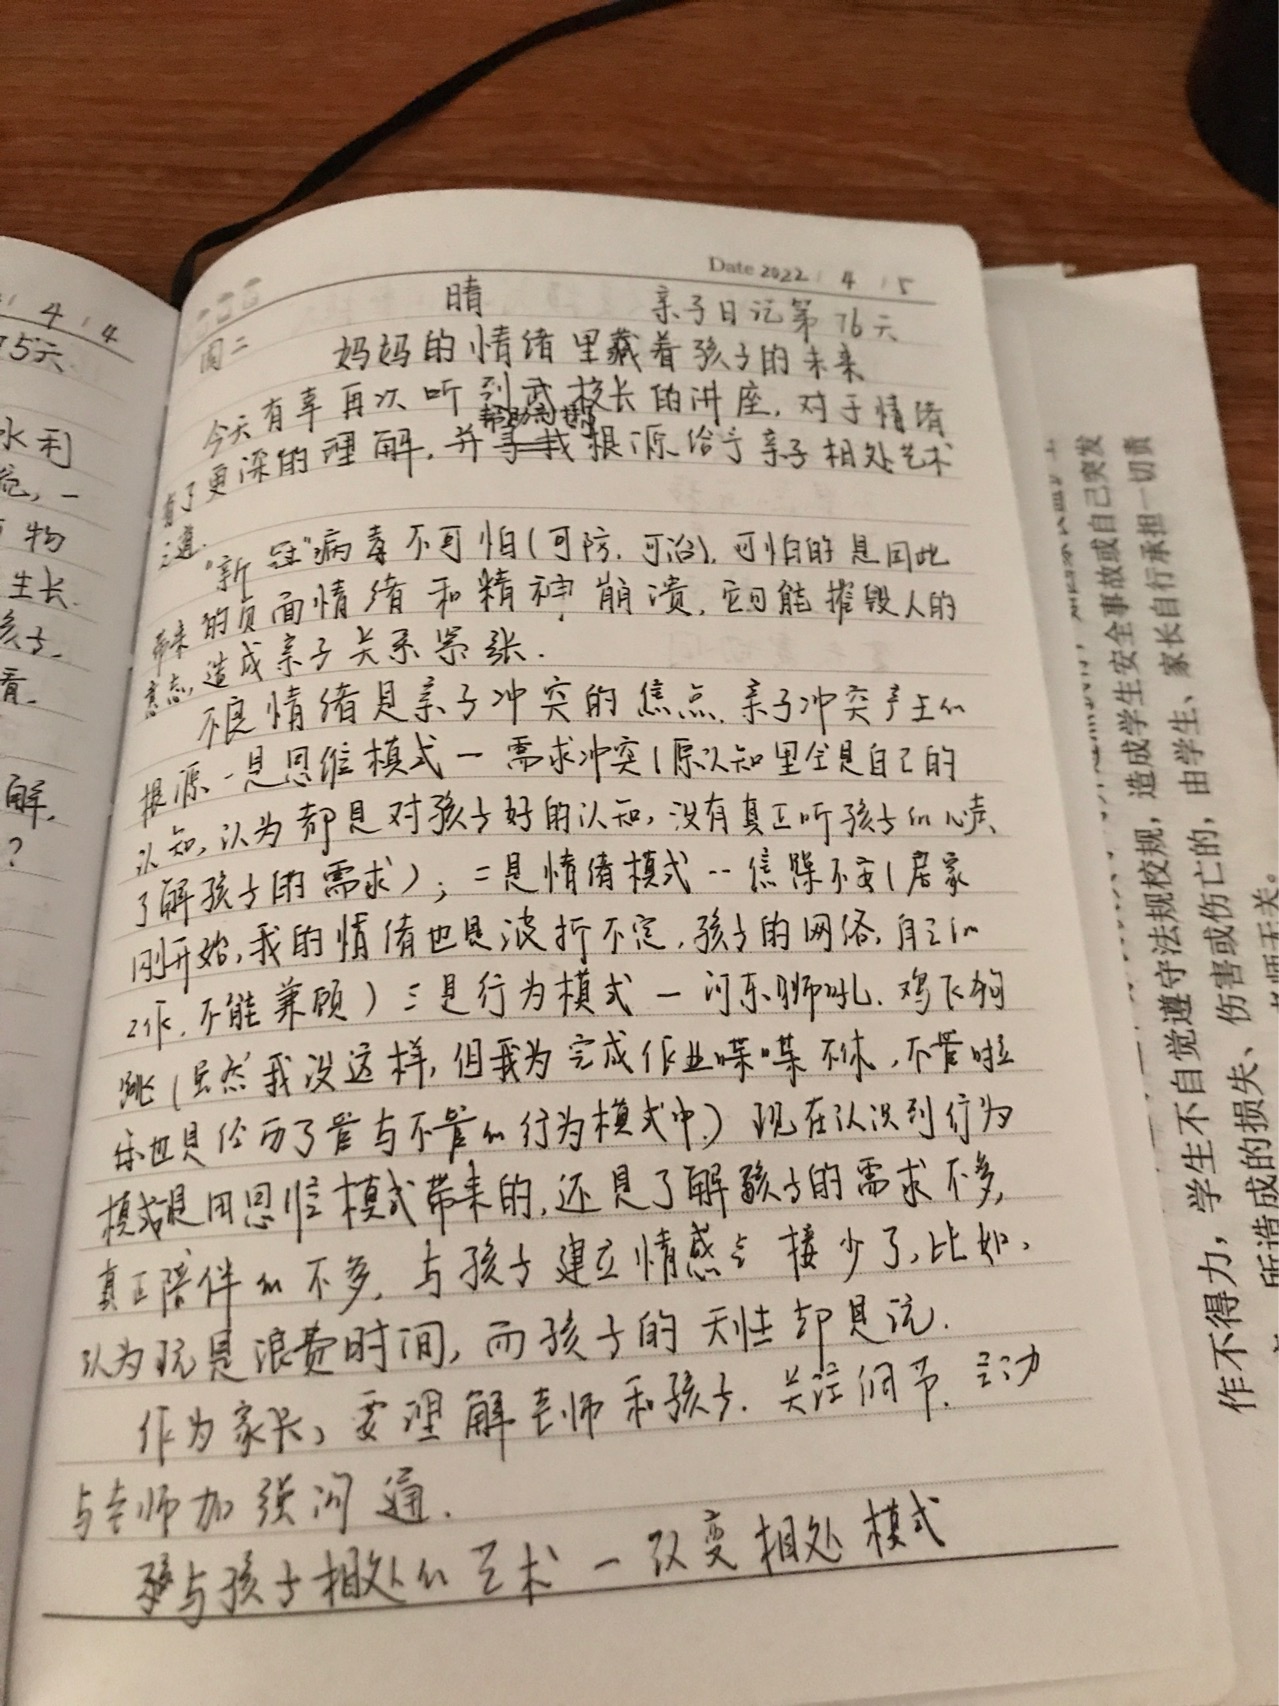 Date 2022 4 5
周二 晴 亲子日记第76天
妈妈的情绪里藏着孩子的未来
今天有幸再次听到武校长的讲座,对于情绪
帮助寻找
有了更深的理解,并 根源给予亲子相处艺术
之道.
"新冠"病毒不可怕(可防.可治),可怕的是因此
带来的负面情绪和精神崩溃,它可能摧毁人的
意志,造成亲子关系紧张.
不良情绪是亲子冲突的焦点.亲子冲突产生的
根源一是思维模式一需求冲突(原认知里全是自己的
认知,认为都是对孩子好的认知,没有真正听孩子的心声,
了解孩子的需求);二是情绪模式--焦躁不安(居家
刚开始,我的情绪也是波折不定,孩子的网络,自己的
工作,不能兼顾)三是行为模式一河东狮吼.鸡飞狗
跳(虽然我没这样,但我为完成作业喋喋不休,不管啦
来也是经历了管与不管的行为模式中)现在认识到行为
模式是用思维模式带来的,还是了解孩子的需求不多,
真正陪伴的不多,与孩子建立情感 接少了,比如,
认为玩是浪费时间,而孩子的天性却是玩.
作为家长,要理解老师和孩子.关注细节.主动
与老师加强沟通.
与孩子相处的艺术一改变相处模式
4 4
75天
水利
一
物
生长.
孩子.
看.
解,
?
造成学生安全事故或自己突发
由学生、家长自行承担一切责
学生不自觉遵守法规校规,
伤害或伤亡的,
作不得力,
所造成的损失、
老师无关。